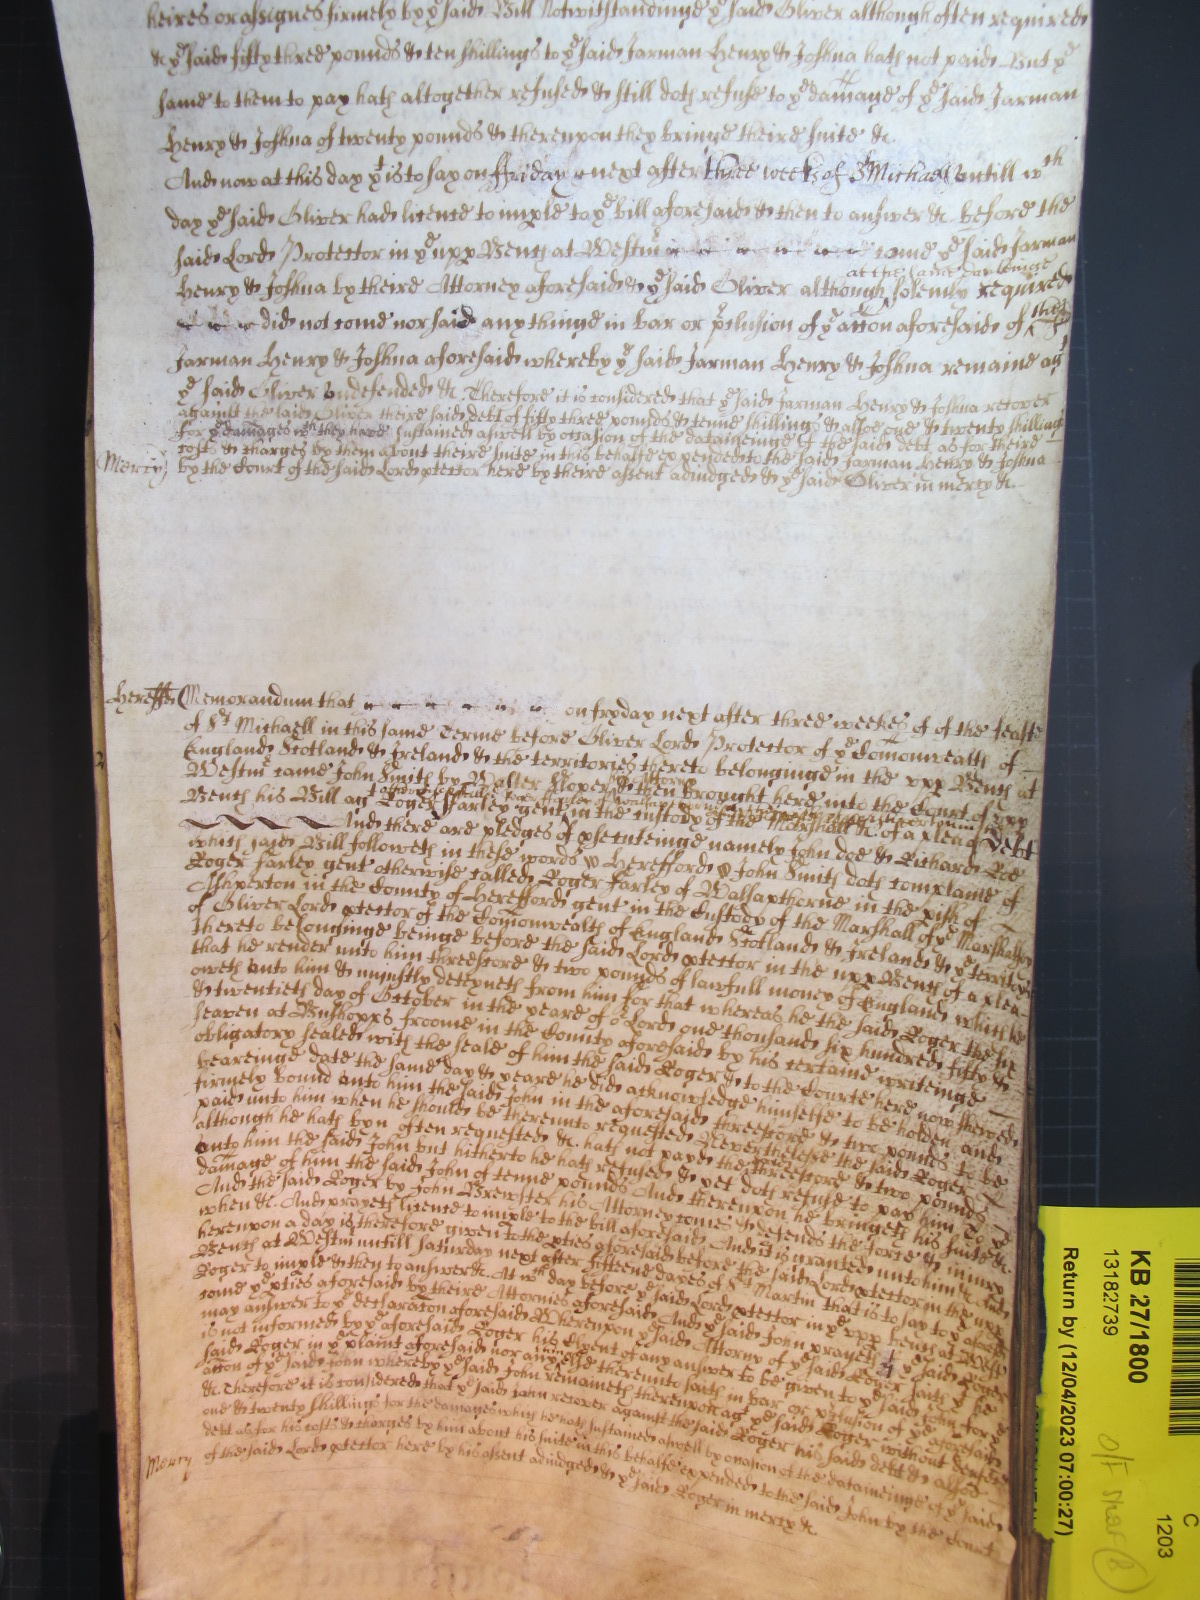 heires or assignes firmely by ye said Bill Notwithstandinge ye said Oliver although often required
& ye said fifty three pounds & ten shillings to ye said Jarman Henry & Joshua hath not paid But ye
same to them to pay hath altogether refused & still doth refuse to ye damage of ye said Jarman
Henry & Joshua of twenty pounds & thereupon they bringe theire suite &c.
And now at this day yt is to say on ffriday next after three weeks of St Michaell untill wch
day ye said Oliver had licence to imple to ye bill aforesaid & then to answer &c before the
said Lord Protector in ye upp Bench at Westm came ye said Jarman
at the same day beinge
Henry & Joshua by theire Attorney aforesaid & ye said Oliver although solemly required
did not come nor said any thinge in bar or pclusion of ye accon aforesaid of the
Jarman Henry & Joshua aforesaid whereby ye said Jarman Henry & Joshua remaine agt
ye said Oliver undefended &c. Therefore it is considered that ye said Jarman Henry & Joshua recover
against the said Oliver theire said debt of fifty three pounds & tenne shillings & alsoe one & twenty shillings
for ye damages wch they have sustained aswell by occasion of the detaineinge of the said debt as for theire
costs & charges by them about theire suite in this behalfe expended to the said Jarman Henry & Joshua
Mercy by the Court of the said Lord ptector here by theire assent adiudged & ye said Oliver in mercy &c.
Hereff Memorandum that on fryday next after three weekes of of the feast
of St Michaell in this same Terme before Oliver Lord Protector of ye Comonwealth of
England Scotland & Ireland & the territories thereto belonginge in the upp Bench at
Westm came John Smith by Walter Sloper his Attorny & then brought here into the Court of upp
Bench his Bill agt Roger Farley gent in the custody of the Marshall &c of a plea of Debt
And there are pledges of psecuteinge namely John Doe & Richard Roe
which said Bill followeth in these words ss Herefford ss John Smith doth complaine of
Roger Farley gent otherwise called Roger Farley of Walsapthorne in the pish of
Ashperton in the County of Herefford gent in the Custody of the Marshall of ye Marshalsey
of Oliver Lord ptector of the Comonwealth of England Scotland & Ireland & ye territories
thereto belonginge beinge before the said Lord ptector in the upp Bench of a plea
that he render unto him threescore & two pounds of lawfull money of England which he
oweth unto him & uniustly deteyneth from him for that whereas he the said Roger the six
& twentieth day of October in the yeare of or Lord one thousand six hundred fifty &
seaven at Bushopps Froome in the County aforesaid by his certaine writeinge
obligatory sealed with the seale of him the said Roger & to the Courte here now shewed
beareinge date the same day & yeare he did acknowledge himselfe to be holden and
firmely bound unto him the said John in the aforesaid threescore & two pounds to be
paid unto him when he should be thereunto requested Neverthelesse the said Roger
although he hath byn often requested &c. hath not payd the threescore & two pounds
unto him the said John but hitherto he hath refused & yet doth refuse to pay him To ye
damage of him the said John of tenne pounds And thereupon he bringeth his suite &c.
And the said Roger by John Brewster his Attorney comes & defends the force & iniury
when &c. And prayeth licence to imple to the bill aforesaid And it is granted unto him &c And
hereupon a day is therefore given to the pties aforesaid before the said Lord ptector in the upp
Bench at Westm untill Saturday next after fifteene dayes of St Martin that is to say to ye aforesd
Roger to imple & then to answer &c. At wch day before ye said Lord ptector in ye upp bench at Westm
come ye pties aforesaid by theire Attornies aforesaid And ye said John prayeth yt ye said Roger
may answer to ye declaraton aforesaid Whereupon ye said Attorny of ye said Roger saith yt he
is not informed by ye aforesaid Roger his Clyent of any answer to be given to ye said John for ye
said Roger in ye plaint aforesaid nor any thinge else thereunto saith in bar or pclusion of ye aforesaid
accon of ye said John whereby ye said John remaineth thereupon agt ye said Roger without defence
&c. Therefore it is considered that ye said John recover against the said Roger his said debt & alsoe
one & twenty shillings for the damages which he hath sustained aswell by occasion of the detaineinge of ye said
debt as for his costs & charges by him about his suite in this behalfe expended to the said John by the Court
Mercy of the said Lord ptector here by his assent adiudged & ye said Roger in mercy &c.
KB 27/1800
13182739
Return by (12/04/2023 07:00:27)
C
1203